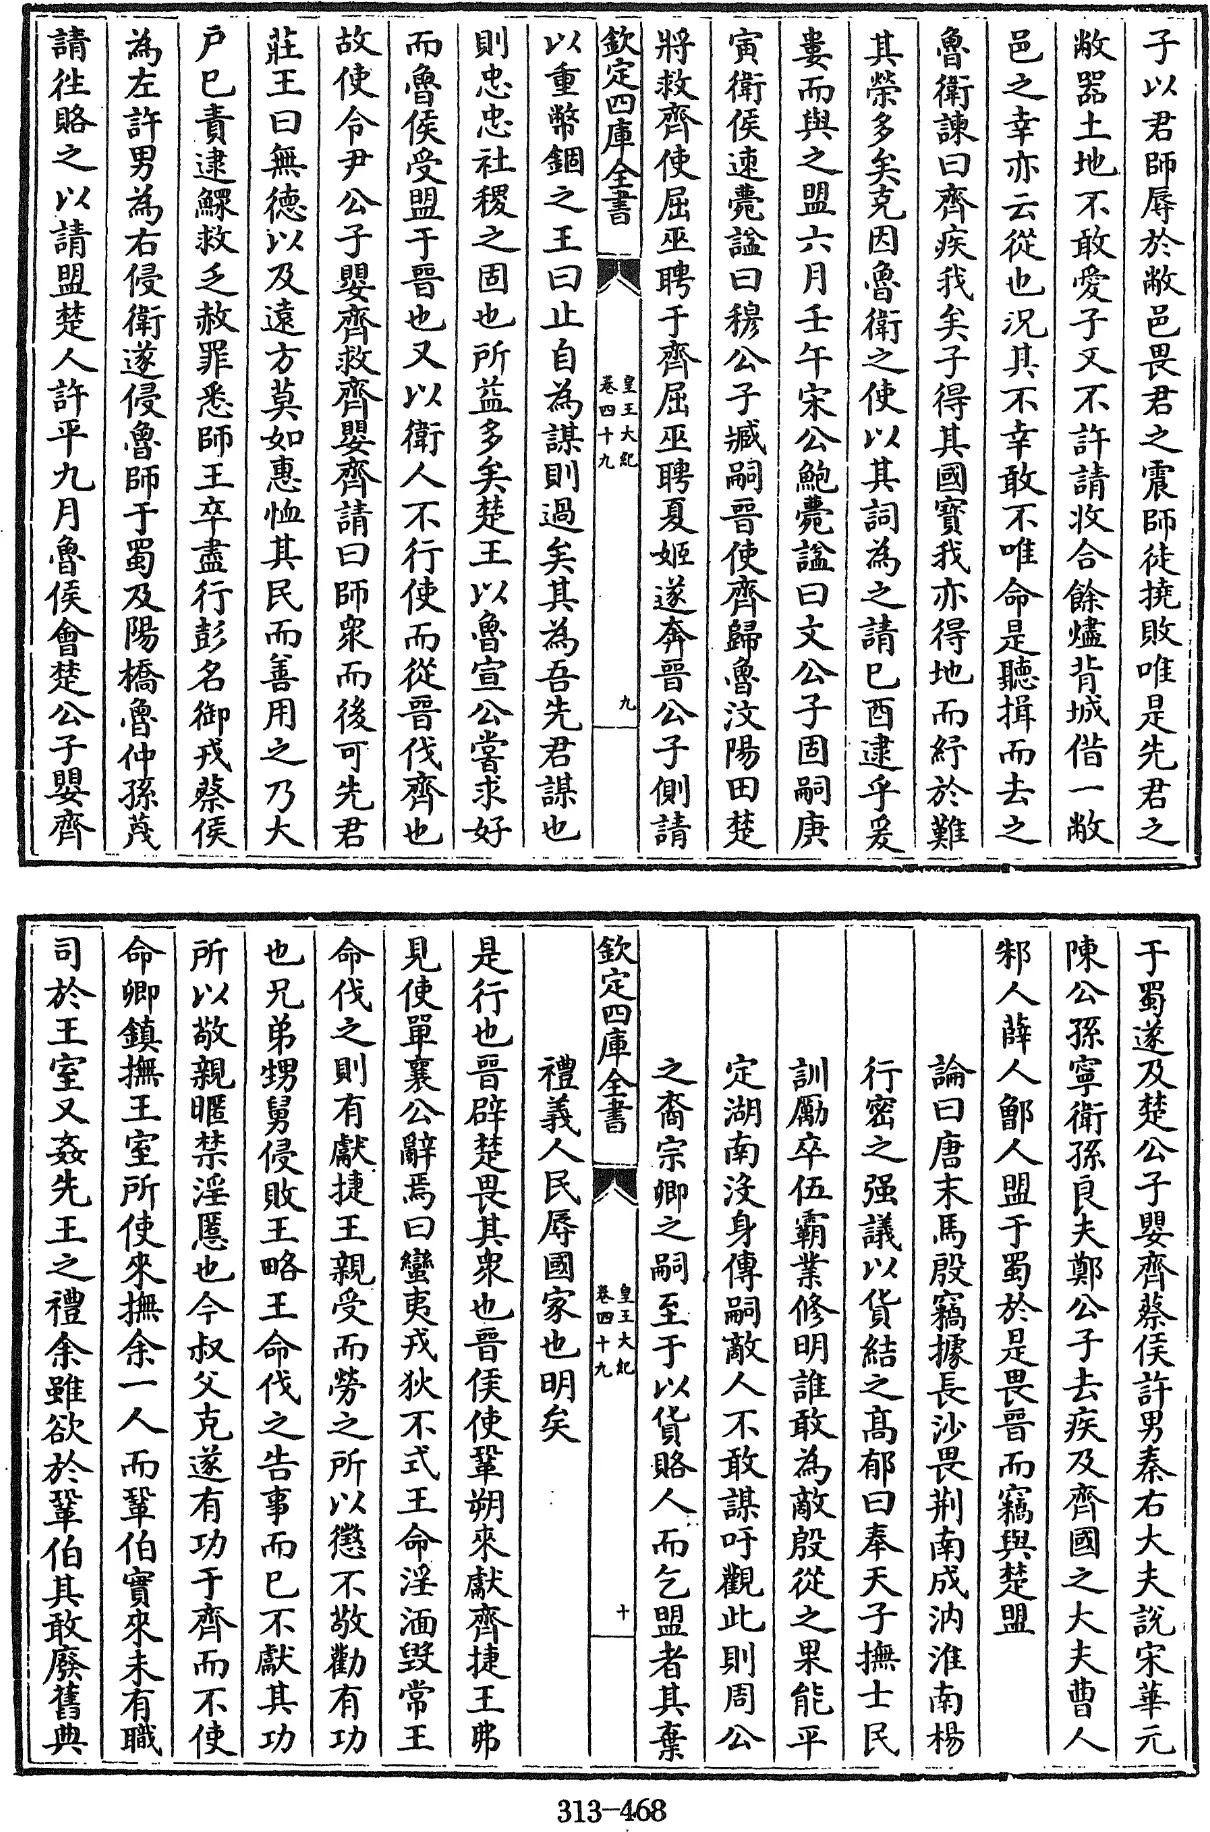 子以君師辱於敝邑畏君之震師徒撓敗唯是先君之
敝器土地不敢愛子又不許請收合餘燼背城借一敝
邑之幸亦云從也況其不幸敢不唯命是聽揖而去之
魯衛諫曰齊疾我矣子得其國寶我亦得地而紓於難
其榮多矣克因魯衛之使以其詞為之請已酉逮乎爰
婁而與之盟六月壬午宋公鮑薨諡曰文公子固嗣庚
寅衛侯速薨諡曰穆公子臧嗣晉使齊歸魯汶陽田楚
將救齊使屈巫聘于齊屈巫聘夏姬遂奔晉公子側請
欽定四庫全書
皇王大紀
卷四十九
九
以重幣錮之王曰止自為謀則過矣其為吾先君謀也
則忠忠社稷之固也所益多矣楚王以魯宣公嘗求好
而魯侯受盟于晉也又以衛人不行使而從晉伐齊也
故使令尹公子嬰齊救齊嬰齊請曰師衆而後可先君
莊王曰無德以及遠方莫如惠恤其民而善用之乃大
戶已責逮鰥救乏赦罪悉師王卒盡行彭名御戎蔡侯
為左許男為右侵衛遂侵魯師于蜀及陽橋魯仲孫蔑
請徃賂之以請盟楚人許平九月魯侯會楚公子嬰齊
于蜀遂及楚公子嬰齊蔡侯許男秦右大夫說宋華元
陳公孫寧衛孫良夫鄭公子去疾及齊國之大夫曹人
邾人薛人鄫人盟于蜀於是畏晉而竊與楚盟
論曰唐末馬殷竊據長沙畏荆南成汭淮南楊
行密之强議以貨結之髙郁曰奉天子撫士民
訓勵卒伍霸業修明誰敢為敵殷從之果能平
定湖南沒身傳嗣敵人不敢謀吁觀此則周公
之裔宗卿之嗣至于以貨賂人而乞盟者其棄
欽定四庫全書
皇王大紀
卷四十九
十
禮義人民辱國家也明矣
是行也晉辟楚畏其衆也晉侯使鞏朔來獻齊捷王弗
見使單襄公辭焉曰蠻夷戎狄不式王命淫湎毀常王
命伐之則有獻捷王親受而勞之所以懲不敬勸有功
也兄弟甥舅侵敗王略王命伐之告事而已不獻其功
所以敬親暱禁淫慝也今叔父克遂有功于齊而不使
命卿鎮撫王室所使來撫余一人而鞏伯實來未有職
司於王室又姦先王之禮余雖欲於鞏伯其敢廢舊典
313-468